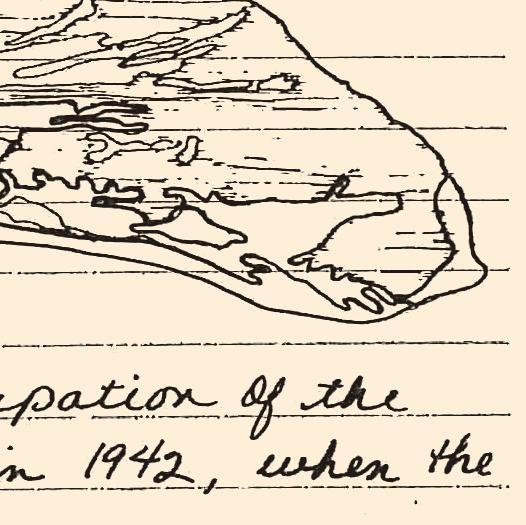 of the
in 1942, when the